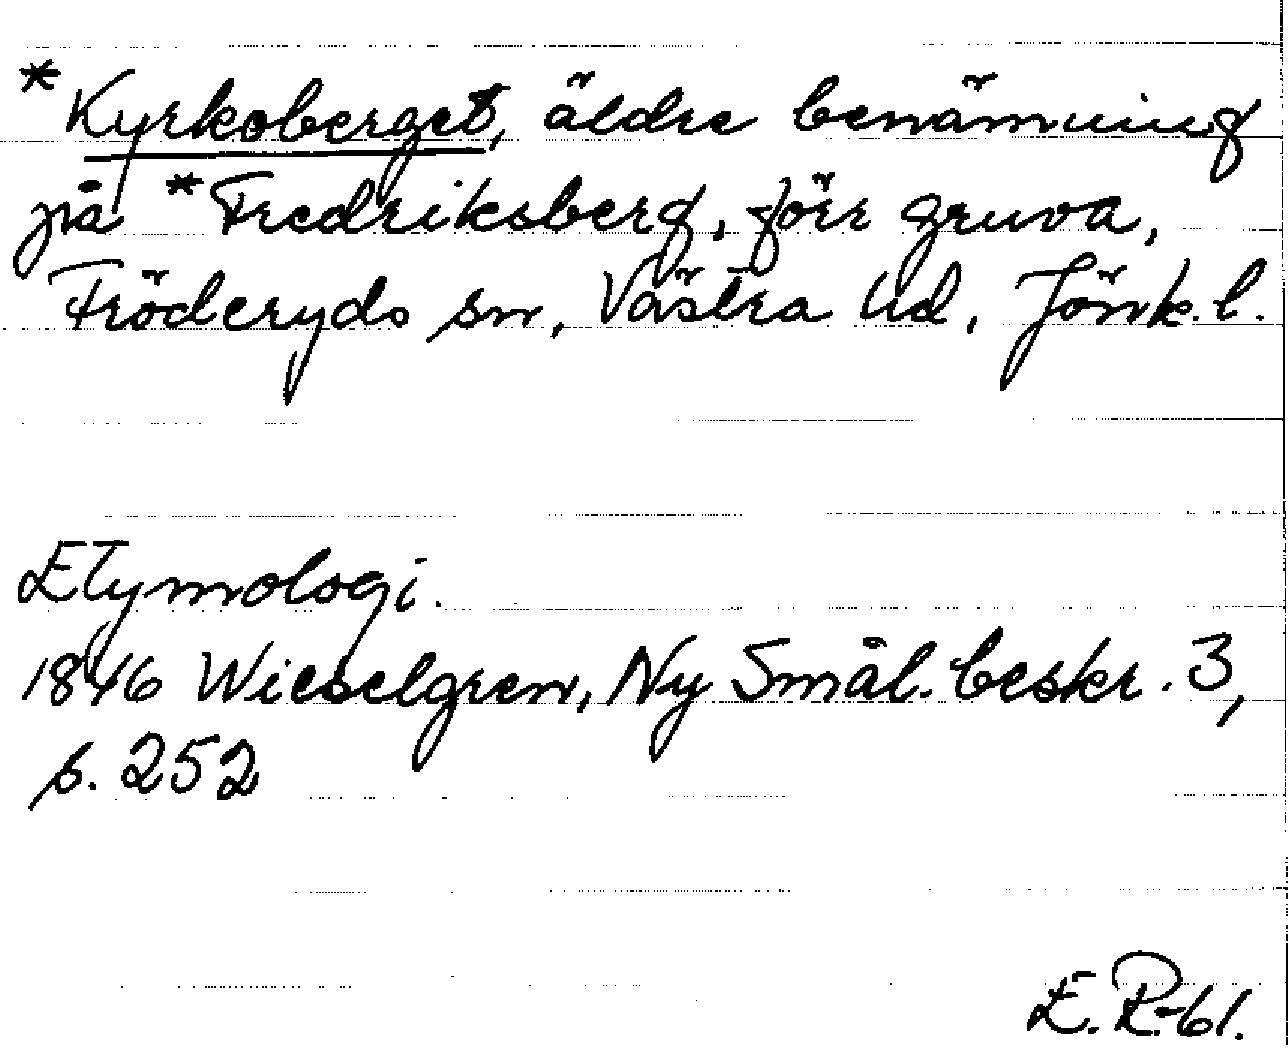 *Kyrkoberget, äldre benämning
på *Fredriksberg, förr gruva,
Fröderyds sn, Västra hd, Jönk. l.
Etymologi.
1846 Wieselgren, Ny Smål. beskr. 3,
s. 252
E. R-61.